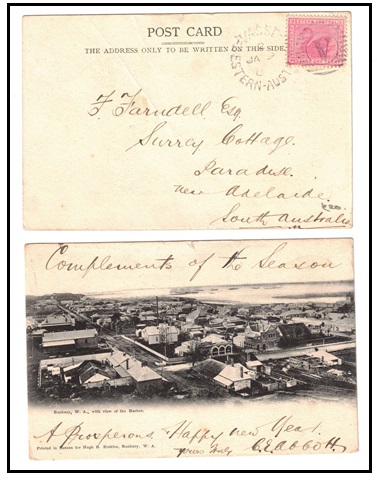 POST CARD
THE ADDRESS ONLY TO BE WRITTEN ON THIS SIDE.
WESTERN-AUST
JA
F. Farndell Esq.
Surrey Cottage.
Paradise.
near Adelaide.
South Australia
Complements of the Season
Bunbury, W. A., with view of the Harbor.
A Prosperous, Happy new Year.
yours truly C. E. Abbott.
Printed in Saxony for Hugh B. Rodden, Bunbury, W. A.